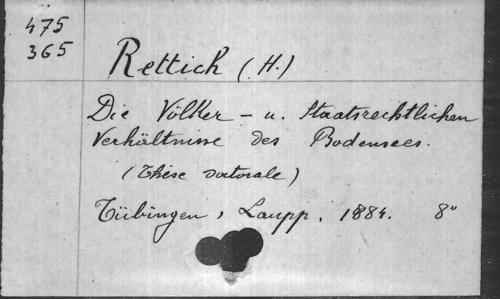 475
365
Rettich (H.)
Die Völker - u. Staatsrechtlichen
Verhältnisse des Bodensees.
(Thèse doctorale)
Tübingen, Laupp, 1884. 8°